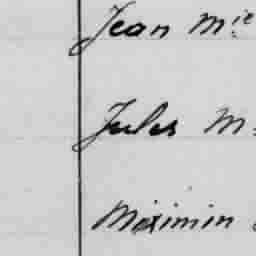 Jean Mie
Jules M.
Maximin